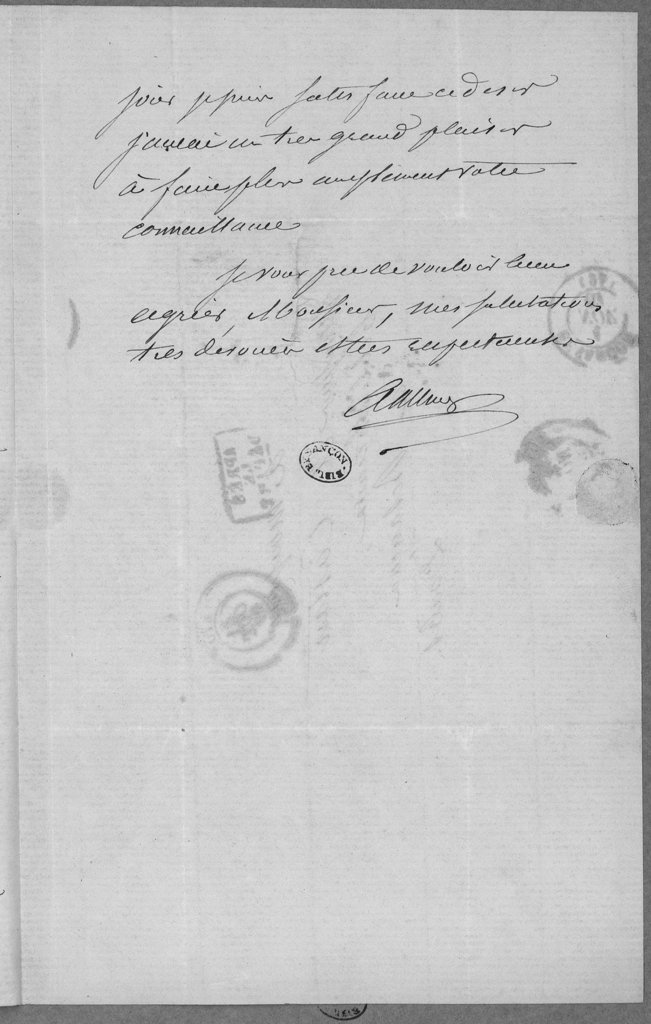 je puis satisfaire ce desir
j'aurai un tres grand plaisir
à faire plus amplement votre
connaissance
Je vous prie de vouloir bien
agréer, Monsieur, mes salutations
tres devouées et tres
BIBL. BESANÇON